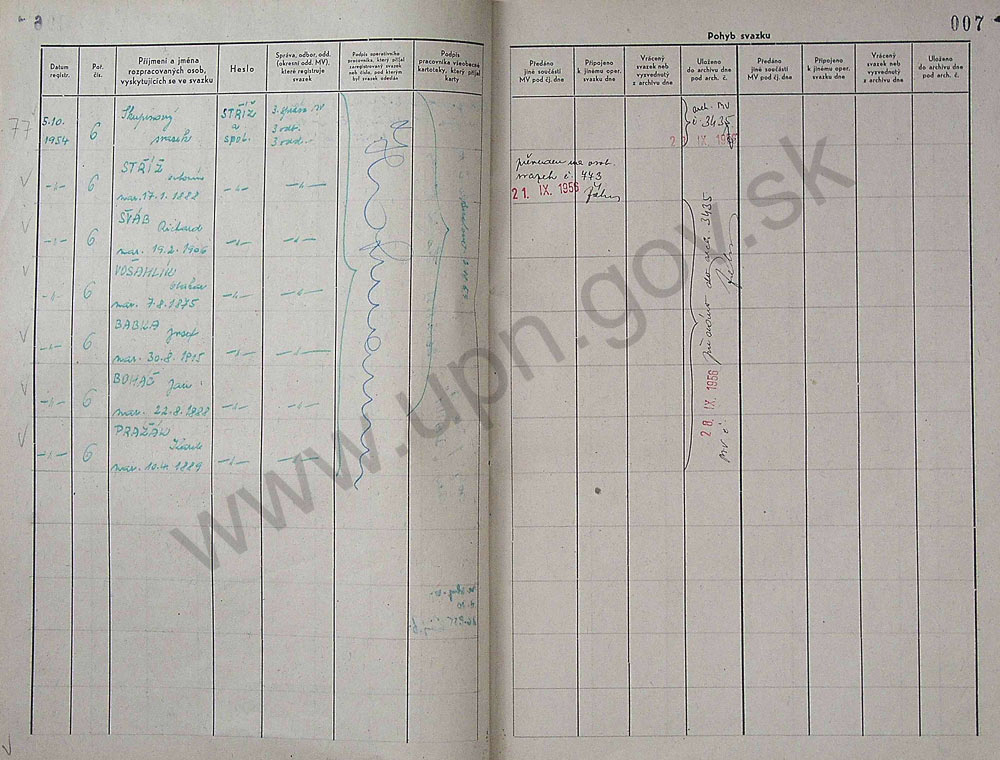 6
007
Pohyb svazku
Datum registr.
Poř. čís.
Příjmení a jména rozpracovaných osob, vyskytujících se ve svazku
Heslo
Správa, odbor, odd. (okresní odd. MV), které registruje svazek
Podpis operativního pracovníka, který přijal zaregistrovaný svazek
Podpis pracovníka všeobecné kartoteky, který přijal karty
Předáno jiné součásti MV pod čj. dne
Připojeno k jinému oper. svazku dne
Vrácený svazek neb vyzvednutý z archivu dne
Uloženo do archivu dne pod arch. č.
Předáno jiné součásti MV pod čj. dne
Připojeno k jinému oper. svazku dne
Vrácený svazek neb vyzvednutý z archivu dne
Uloženo do archivu dne pod arch. č.
77
5.10. 1954
6
Skupinový svazek
STŘÍŽ a spol.
3. správa MV
3 odb.
3 odd.
arch. MV
č. 3435
IX 1956
-"- 6 STŘÍŽ
nar. 17.1. 1888 -"- -"-
převeden na osob.
svazek č. 443
21. IX. 1956
-"- 6 ŠVÁB Richard
nar. 19.2. 1906 -"- -"-
-"- 6 VOSÁHLÍK
nar. 7.8. 1875 -"- -"-
-"- 6 BABKA Josef
nar. 30.8. 1915 -"- -"-
-"- 6 BOHÁČ Jan
nar. 22.8. 1888 -"- -"-
-"- 6 PRAŽÁK Karel
nar. 10.4. 1889 -"- -"-
do arch. 3435
28. IX. 1956
MV č.
www.upn.gov.sk